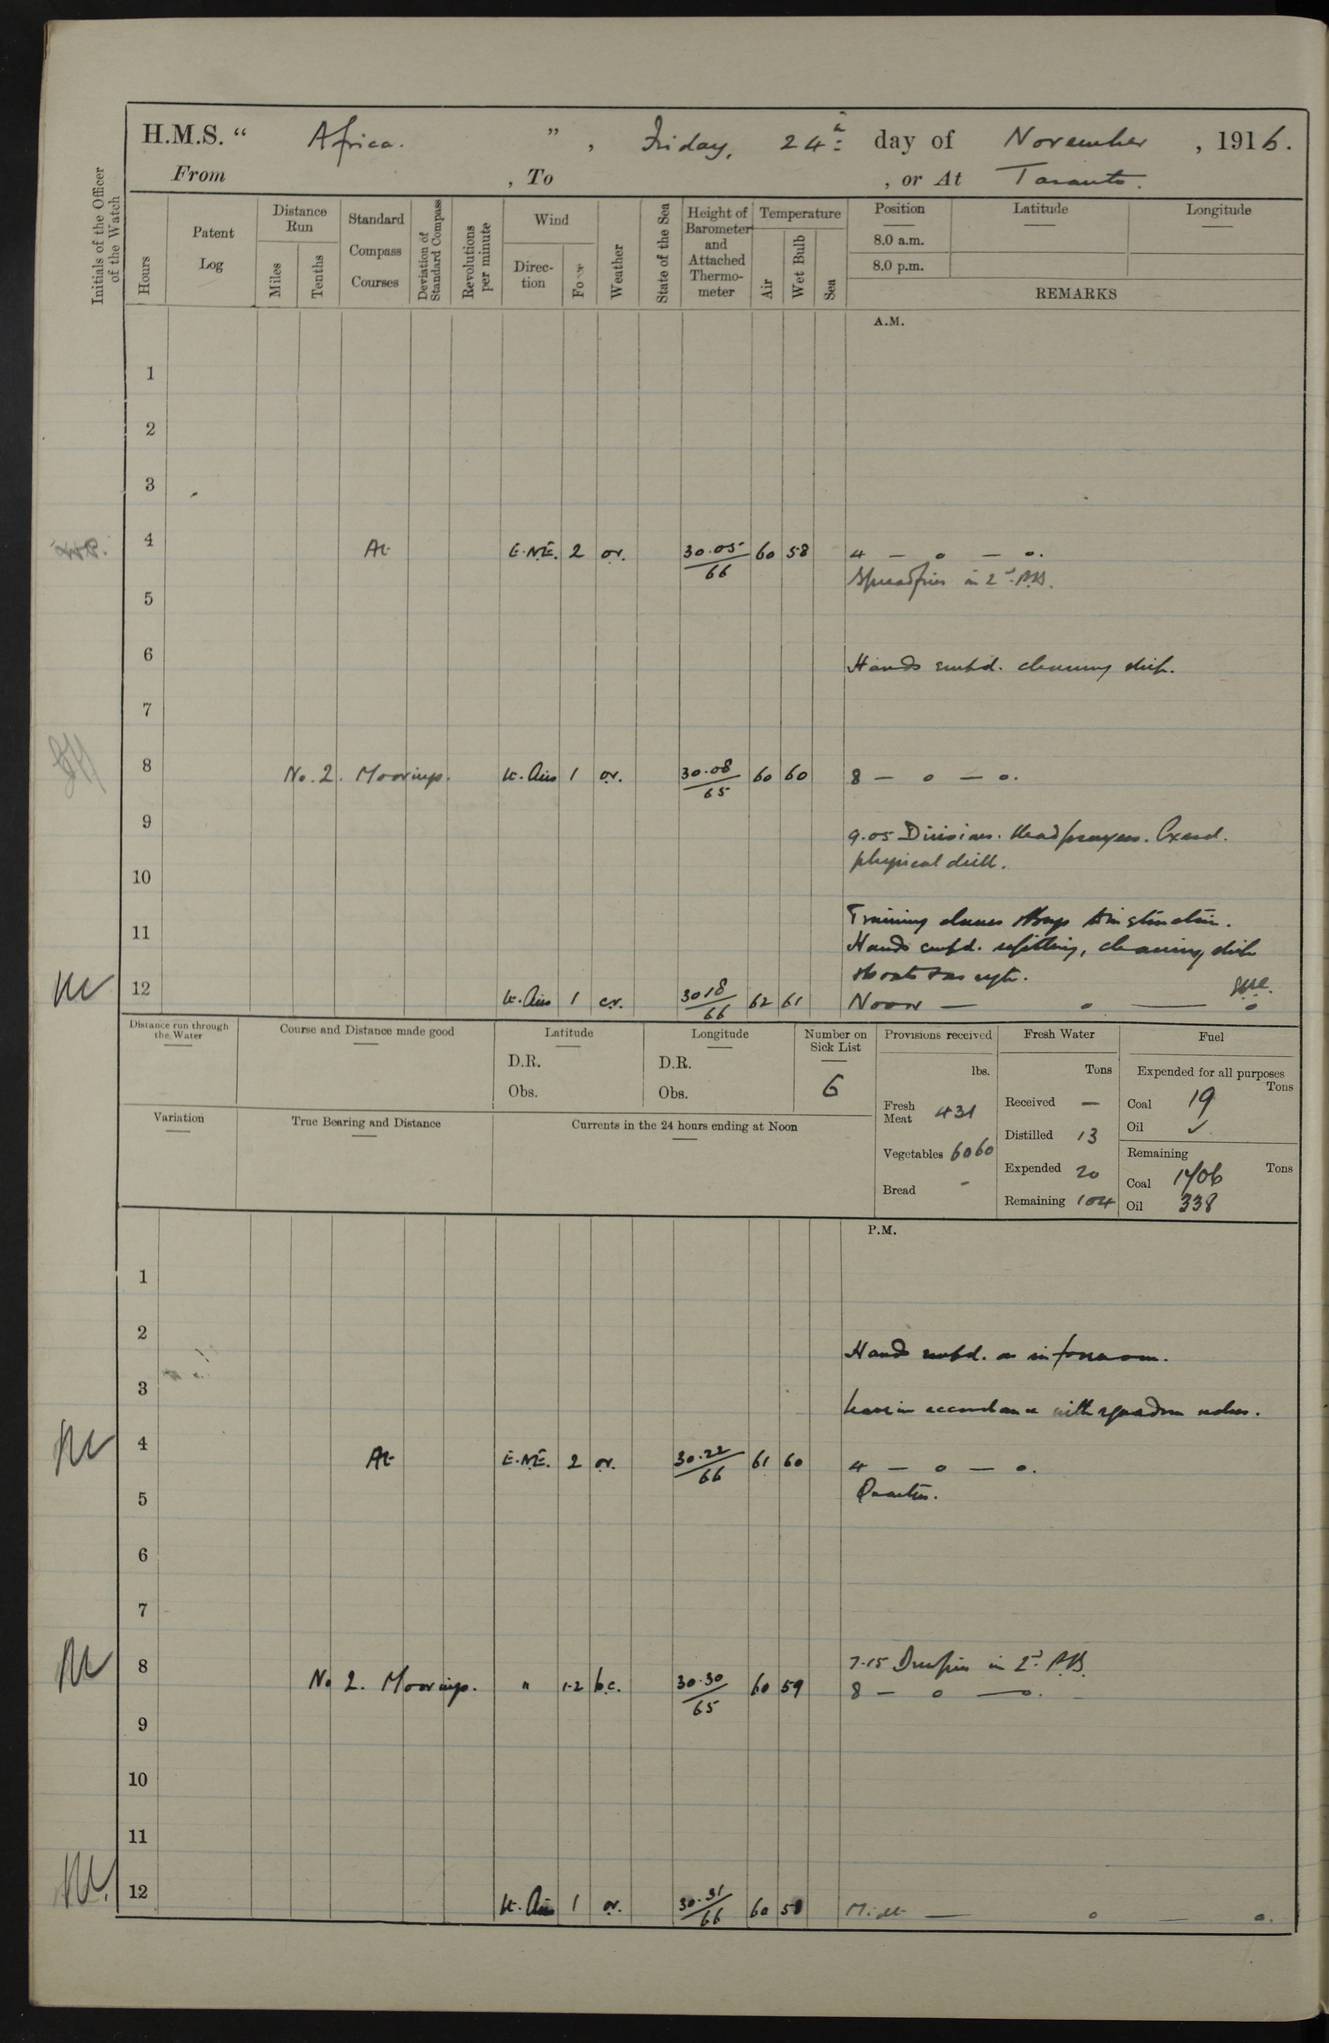 H.M.S. “ Africa. ” , Friday, 24th day of November , 1916.
From , To , or At Taranto.
Initials of the Officer of the Watch
Hours
Patent Log
Distance Run
Miles
Tenths
Standard Compass Courses
Deviation of Standard Compass
Revolutions per minute
Wind
Direction
Force
Weather
State of the Sea
Height of Barometer and Attached Thermometer
Temperature
Air
Wet Bulb
Sea
Position
8.0 a.m.
8.0 p.m.
Latitude
Longitude
REMARKS
A.M.
1
2
3
4 At E.N.E. 2 or. 30.05/66 60 58 4 — o — o.
Spread fires in 2nd B.R.
5
6 Hands empd. cleaning ship.
7
8 No. 2. Moorings. Lt. Airs 1 or. 30.08/65 60 60 8 — o — o.
9 9.05 Divisions. Read prayers. Exend.
physical drill.
10
Training classes at instruction.
11 Hands empd. refitting, cleaning ship
12 Lt. Airs 1 or. 30.18/66 62 61 Noon — o — o
Distance run through the Water
Course and Distance made good
Latitude
D.R.
Obs.
Longitude
D.R.
Obs.
Number on Sick List
6
Provisions received
lbs.
Fresh Meat 431
Vegetables 6060
Bread -
Fresh Water
Tons
Received —
Distilled 13
Expended 20
Remaining 104
Fuel
Expended for all purposes
Tons
Coal 19
Oil ✓
Remaining
Tons
Coal 1706
Oil 338
Variation
True Bearing and Distance
Currents in the 24 hours ending at Noon
P.M.
1
2 Hands empd. as in forenoon.
3 Leave in accordance with squadron orders.
4 At E.N.E. 2 or. 30.22/66 61 60 4 — o — o.
Quarters.
5
6
7
7.15 Drew fires in 2nd B.R.
8 No 2. Moorings. " 1-2 b.c. 30.30/65 60 59 8 — o — o.
9
10
11
12 Lt. Airs 1 or. 30.31/66 60 58 Midt — o — o.